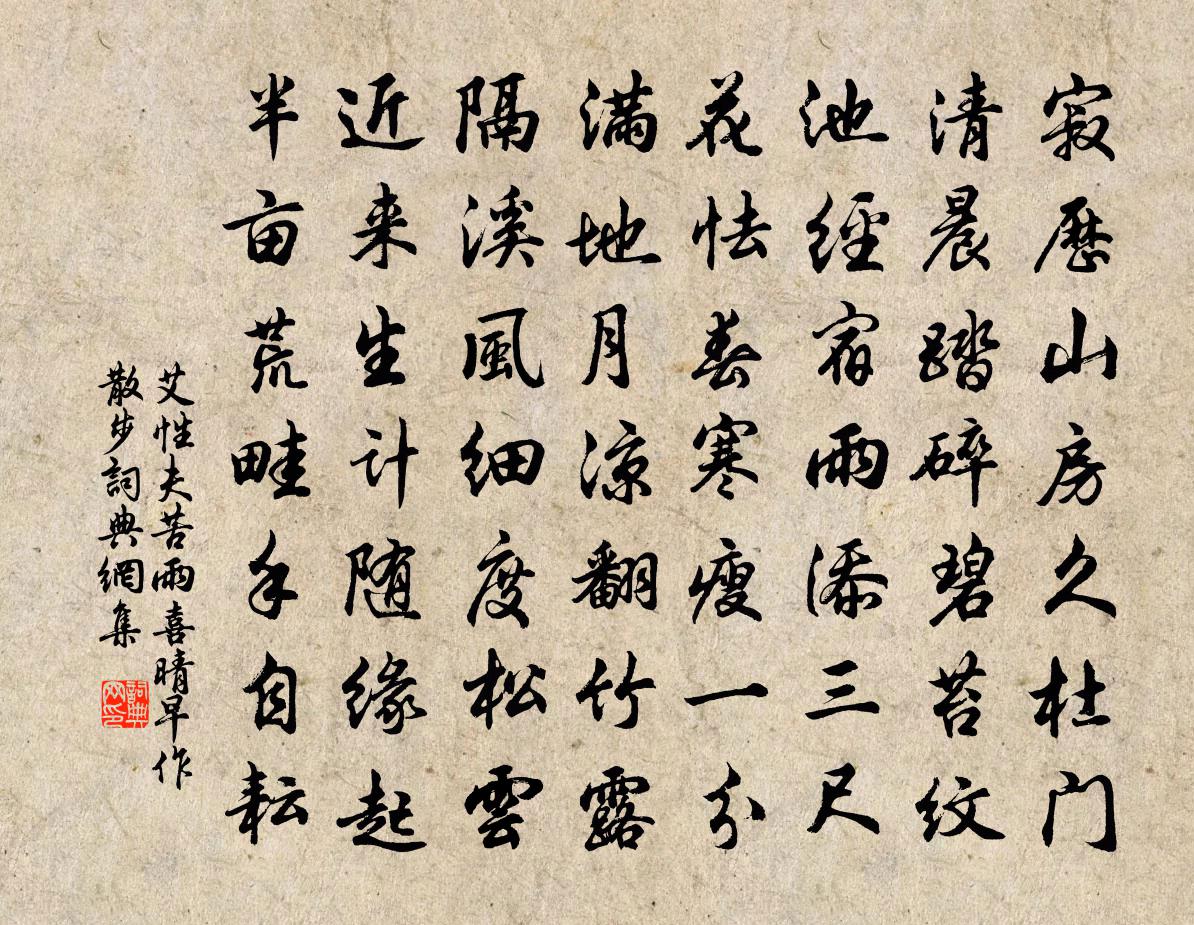 寂歷山房久杜门
清晨踏碎碧苔纹
池經宿雨添三尺
花怯春寒瘦一分
满地月凉翻竹露
隔溪風细度松雲
近来生计随缘起
半亩荒畦手自耘
艾性夫苦雨喜晴早作
散步詞典網集
詞典网印